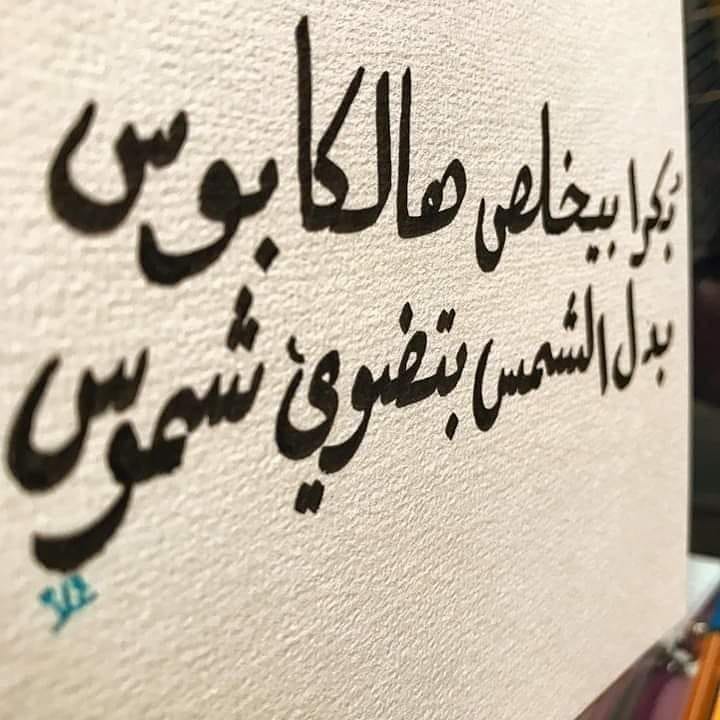 بُكرا بيخلص هالكابوس
بدل الشمس بتضوي شموس